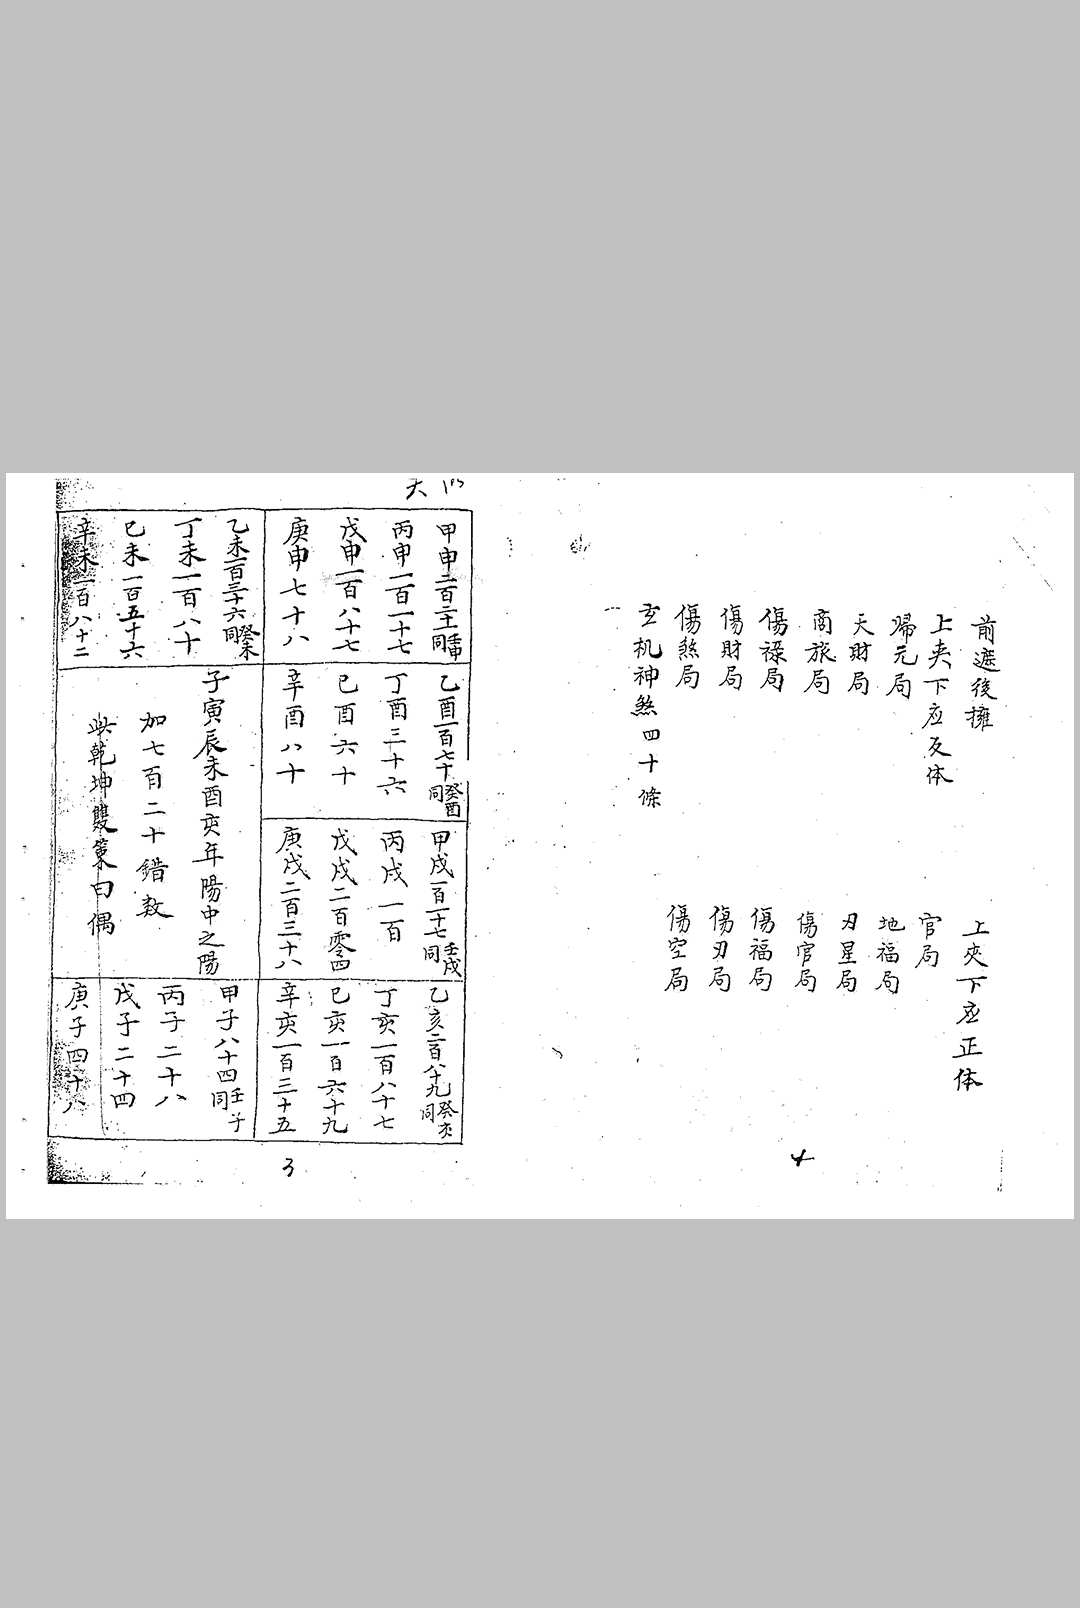 前遮後擁
上夾下应正体
上夹下应反体
官局
帰元局
地福局
天財局
刃星局
商旅局
傷官局
傷祿局
傷福局
傷財局
傷刃局
傷煞局
傷空局
玄机神煞四十條
4
天
甲申二百二十 壬申同
丙申一百一十七
戊申一百八十七
庚申七十八
乙未一百三十六 癸未同
丁未一百八十
己未一百五十六
辛未一百八十二
乙酉一百七十 癸酉同
丁酉三十六
己酉六十
辛酉八十
甲戌一百一十七 壬戌同
丙戌一百
戊戌二百零四
庚戌二百三十八
子寅辰未酉亥年陽中之陽
加七百二十錯数
此乾坤雙策曰偶
乙亥二百八十九 癸亥同
丁亥一百八十七
己亥一百六十九
辛亥一百三十五
甲子八十四 壬子同
丙子二十八
戊子二十四
庚子四十八
3